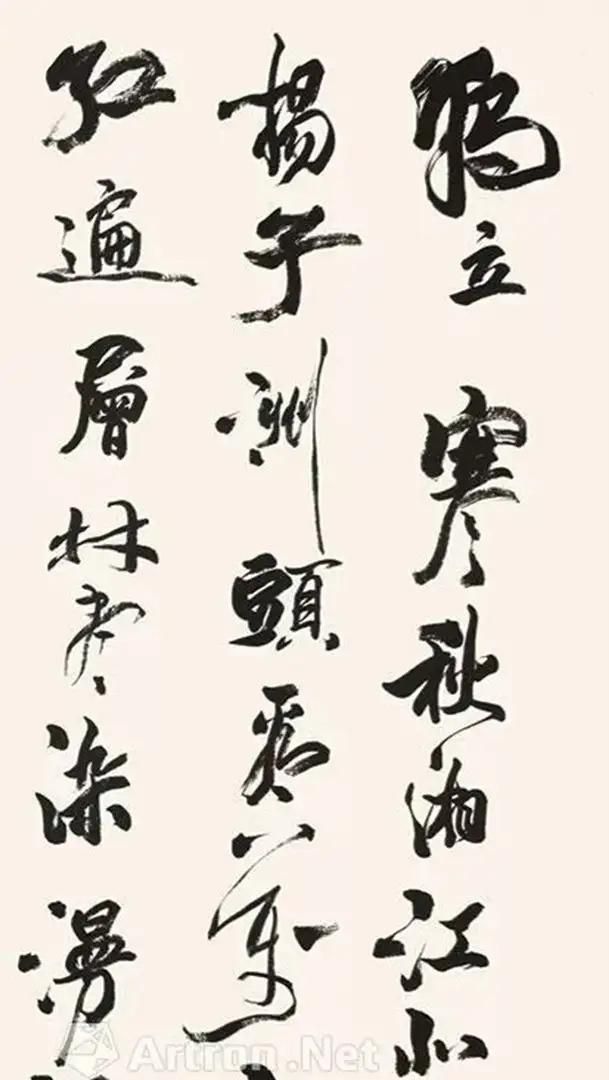 獨立寒秋湘江北
橘子洲頭看萬
紅遍層林盡染漫
Artron.Net